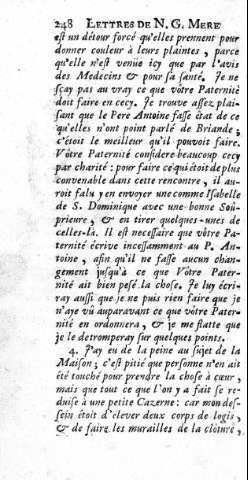 248 LETTRES DE N. G. MERE
est un détour forcé qu'elles prennent pour
donner couleur à leurs plaintes, parce
qu'elle n'est venüe icy que par l'avis
des Medecins & pour sa santé. Je ne
sçay pas au vray ce que vôtre Paternité
doit faire en cecy. Je trouve assez plai-
sant que le Pere Antoine fasse état de ce
qu'elles n'ont point parlé de Briande;
c'étoit le meilleur qu'il pouvoit faire.
Vôtre Paternité considere beaucoup cecy
par charité: pour faire ce qui étoit de plus
convenable dans cette rencontre, il au-
roit falu y en envoyer une comme Isabelle
de S. Dominique avec une bonne Soû-
prieure, & en tirer quelques-unes de
celles-là. Il est necessaire que vôtre Pa-
ternité écrive incessamment au P. An-
toine, afin qu'il ne fasse aucun chan-
gement jusqu'à ce que Vôtre Pater-
nité ait bien pesé la chose. Je luy écri-
ray aussi que je ne puis rien faire que je
n'aye vû auparavant ce que vôtre Pater-
nité en ordonnera, & je me flatte que
je le detromperay sur quelques points.
4. J'ay eu de la peine au sujet de la
Maison; c'est pitié que personne n'en ait
été touché pour prendre la chose à cœur,
mais que tout ce que l'on y a fait se re-
duise à une petite Cazerne: car mon des-
sein étoit d'élever deux corps de logis,
& de faire les murailles de la clôture,